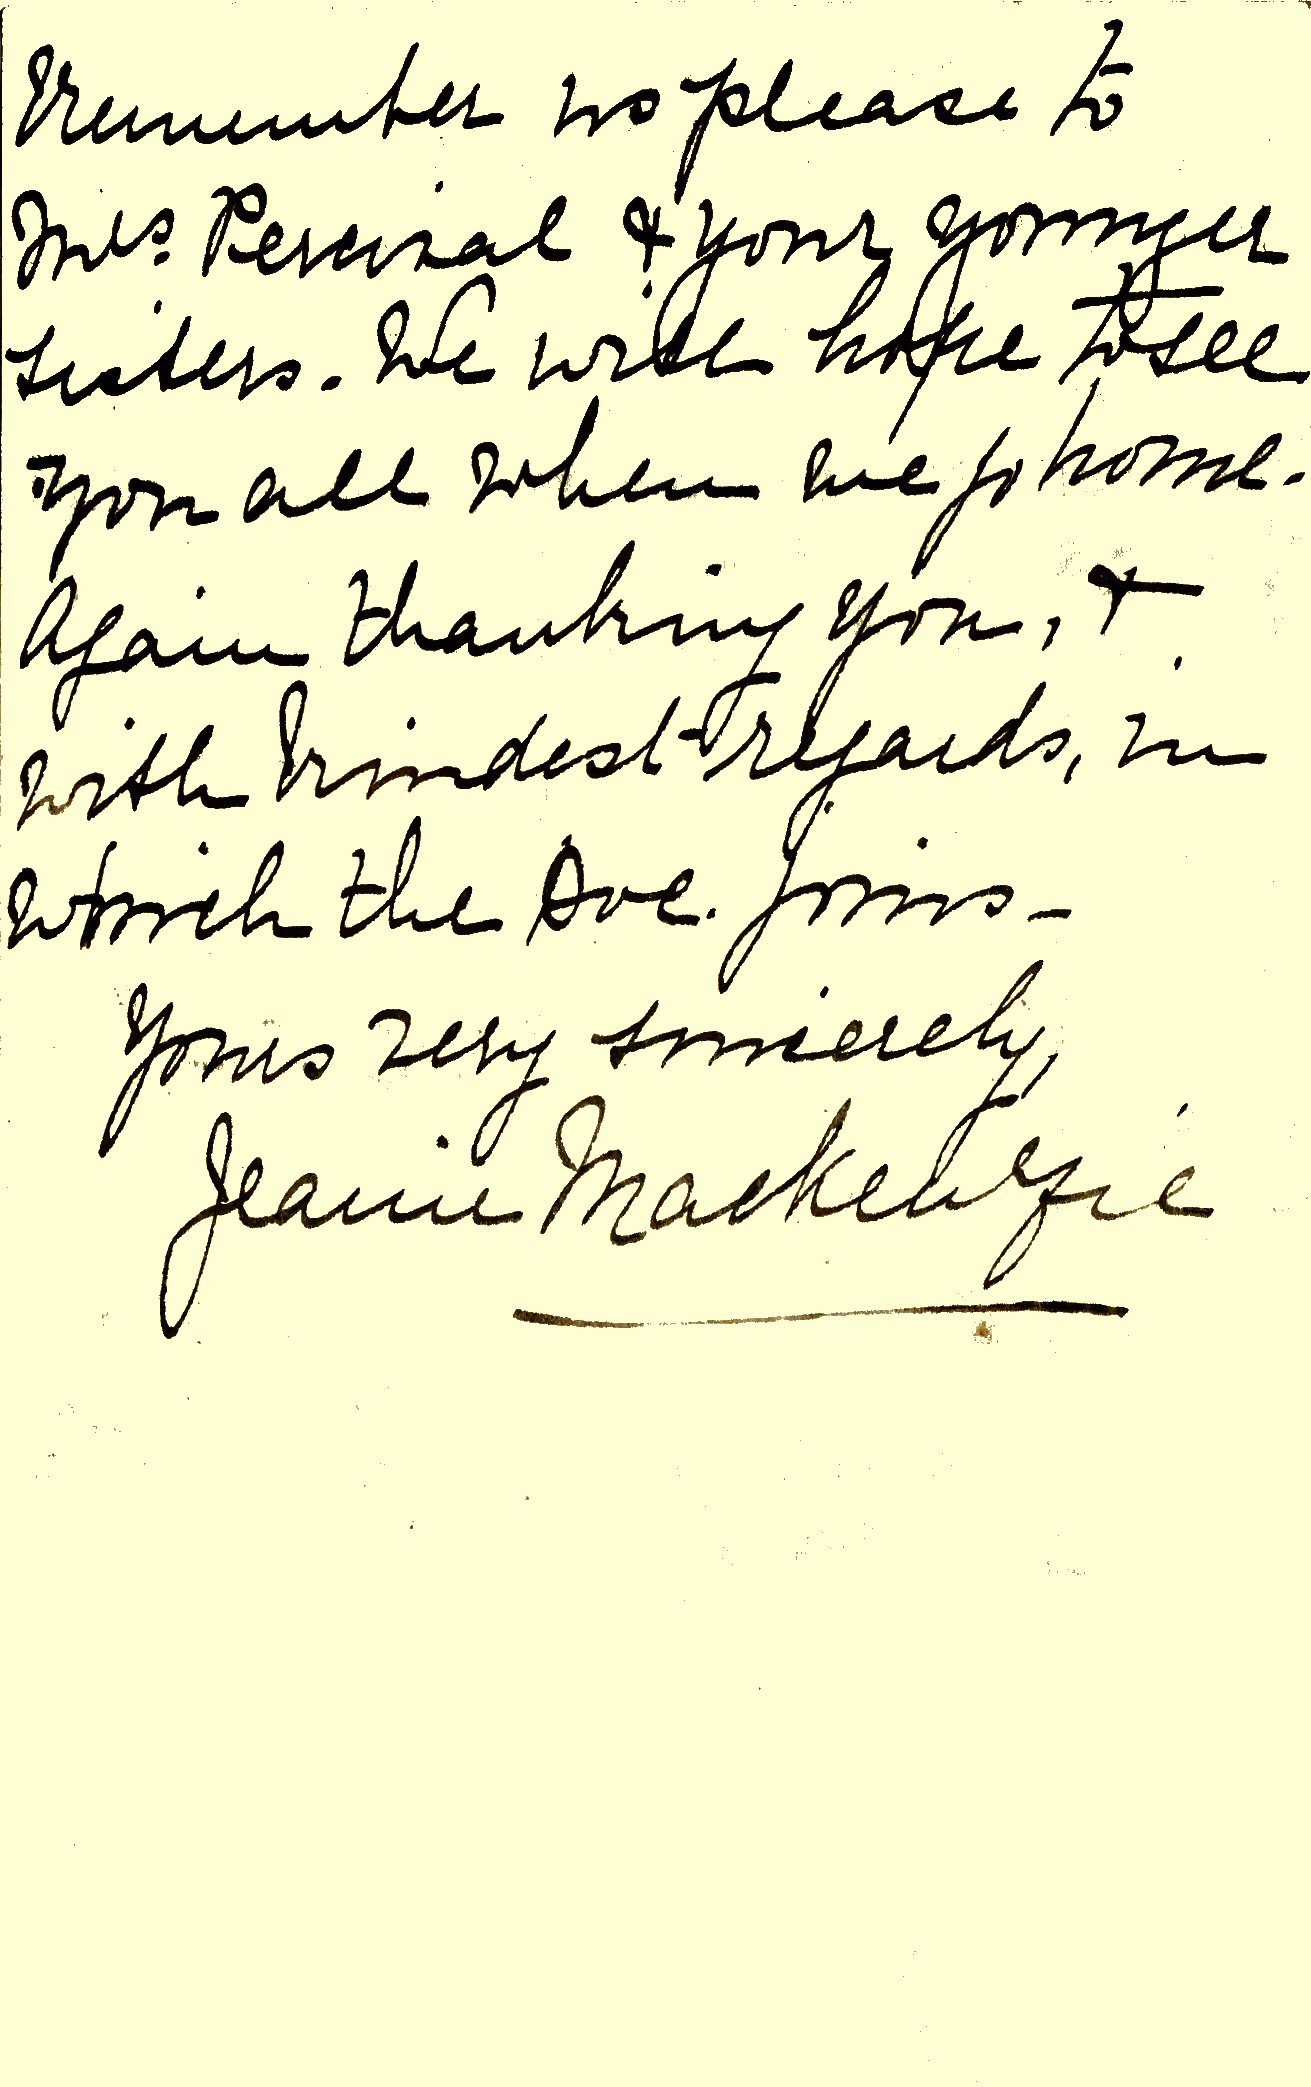 Remember us please to
Mrs. Percival & your younger
sisters. We will hope to see
you all when we go home.
Again thanking you, &
with kindest regards, in
which the Doc. joins –
Yours very sincerely,
Jeanie Mackenzie